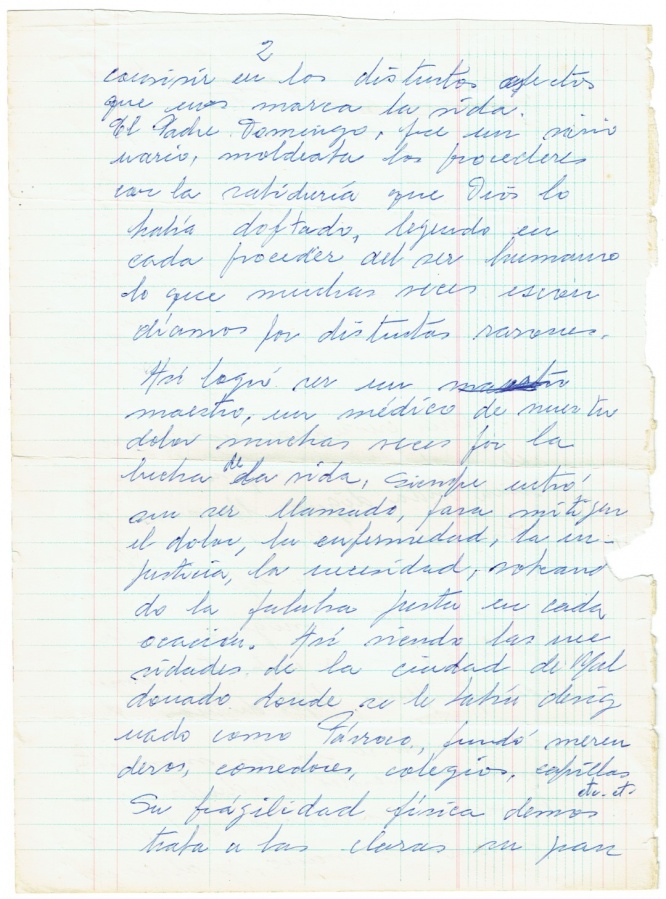 2
en los distintos afectos
que nos marca la vida.
El Padre Domingo, fue un visio
nario, moldeaba los procederes
con la sabiduría que Dios lo
había doftado, leyendo en
cada proceder del ser humano
lo que muchas veces escon
díamos por distintas razones.
Así logró ser un maestro
maestro, un médico de nuestro
dolor muchas veces por la
lucha de la vida, siempre entró
sin ser llamado, para mitigar
el dolor, la enfermedad, la in-
justicia, la necesidad,
do la palabra justa en cada
ocación. Así viendo las nece
sidades de la ciudad de Mal
donado donde se le había desig
nado como Párroco, fundó meren
deros, comedores, colegios, capillas
etc. etc.
Su frágilidad física demos
traba a las claras su gran